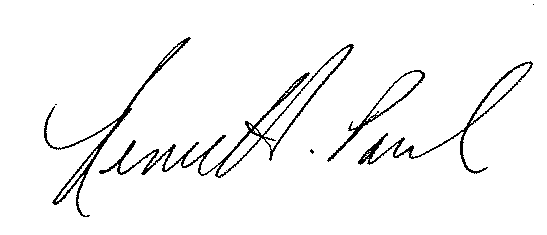 Kenneth A. Paul